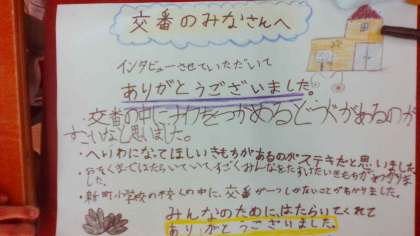 交番のみなさんへ
インタビューさせていただいて
ありがとうございました。
交番の中に
つかめる
があるのが
すごいなと思いました。
・へいわになってほしいきもちがあるのがステキだと思いました。
みんなを
きもちが
ました。
・新町小学校の
中に、交番が一つしかないことがわかりました。
みんなのために、はたらいてくれて
ありがとうございました。